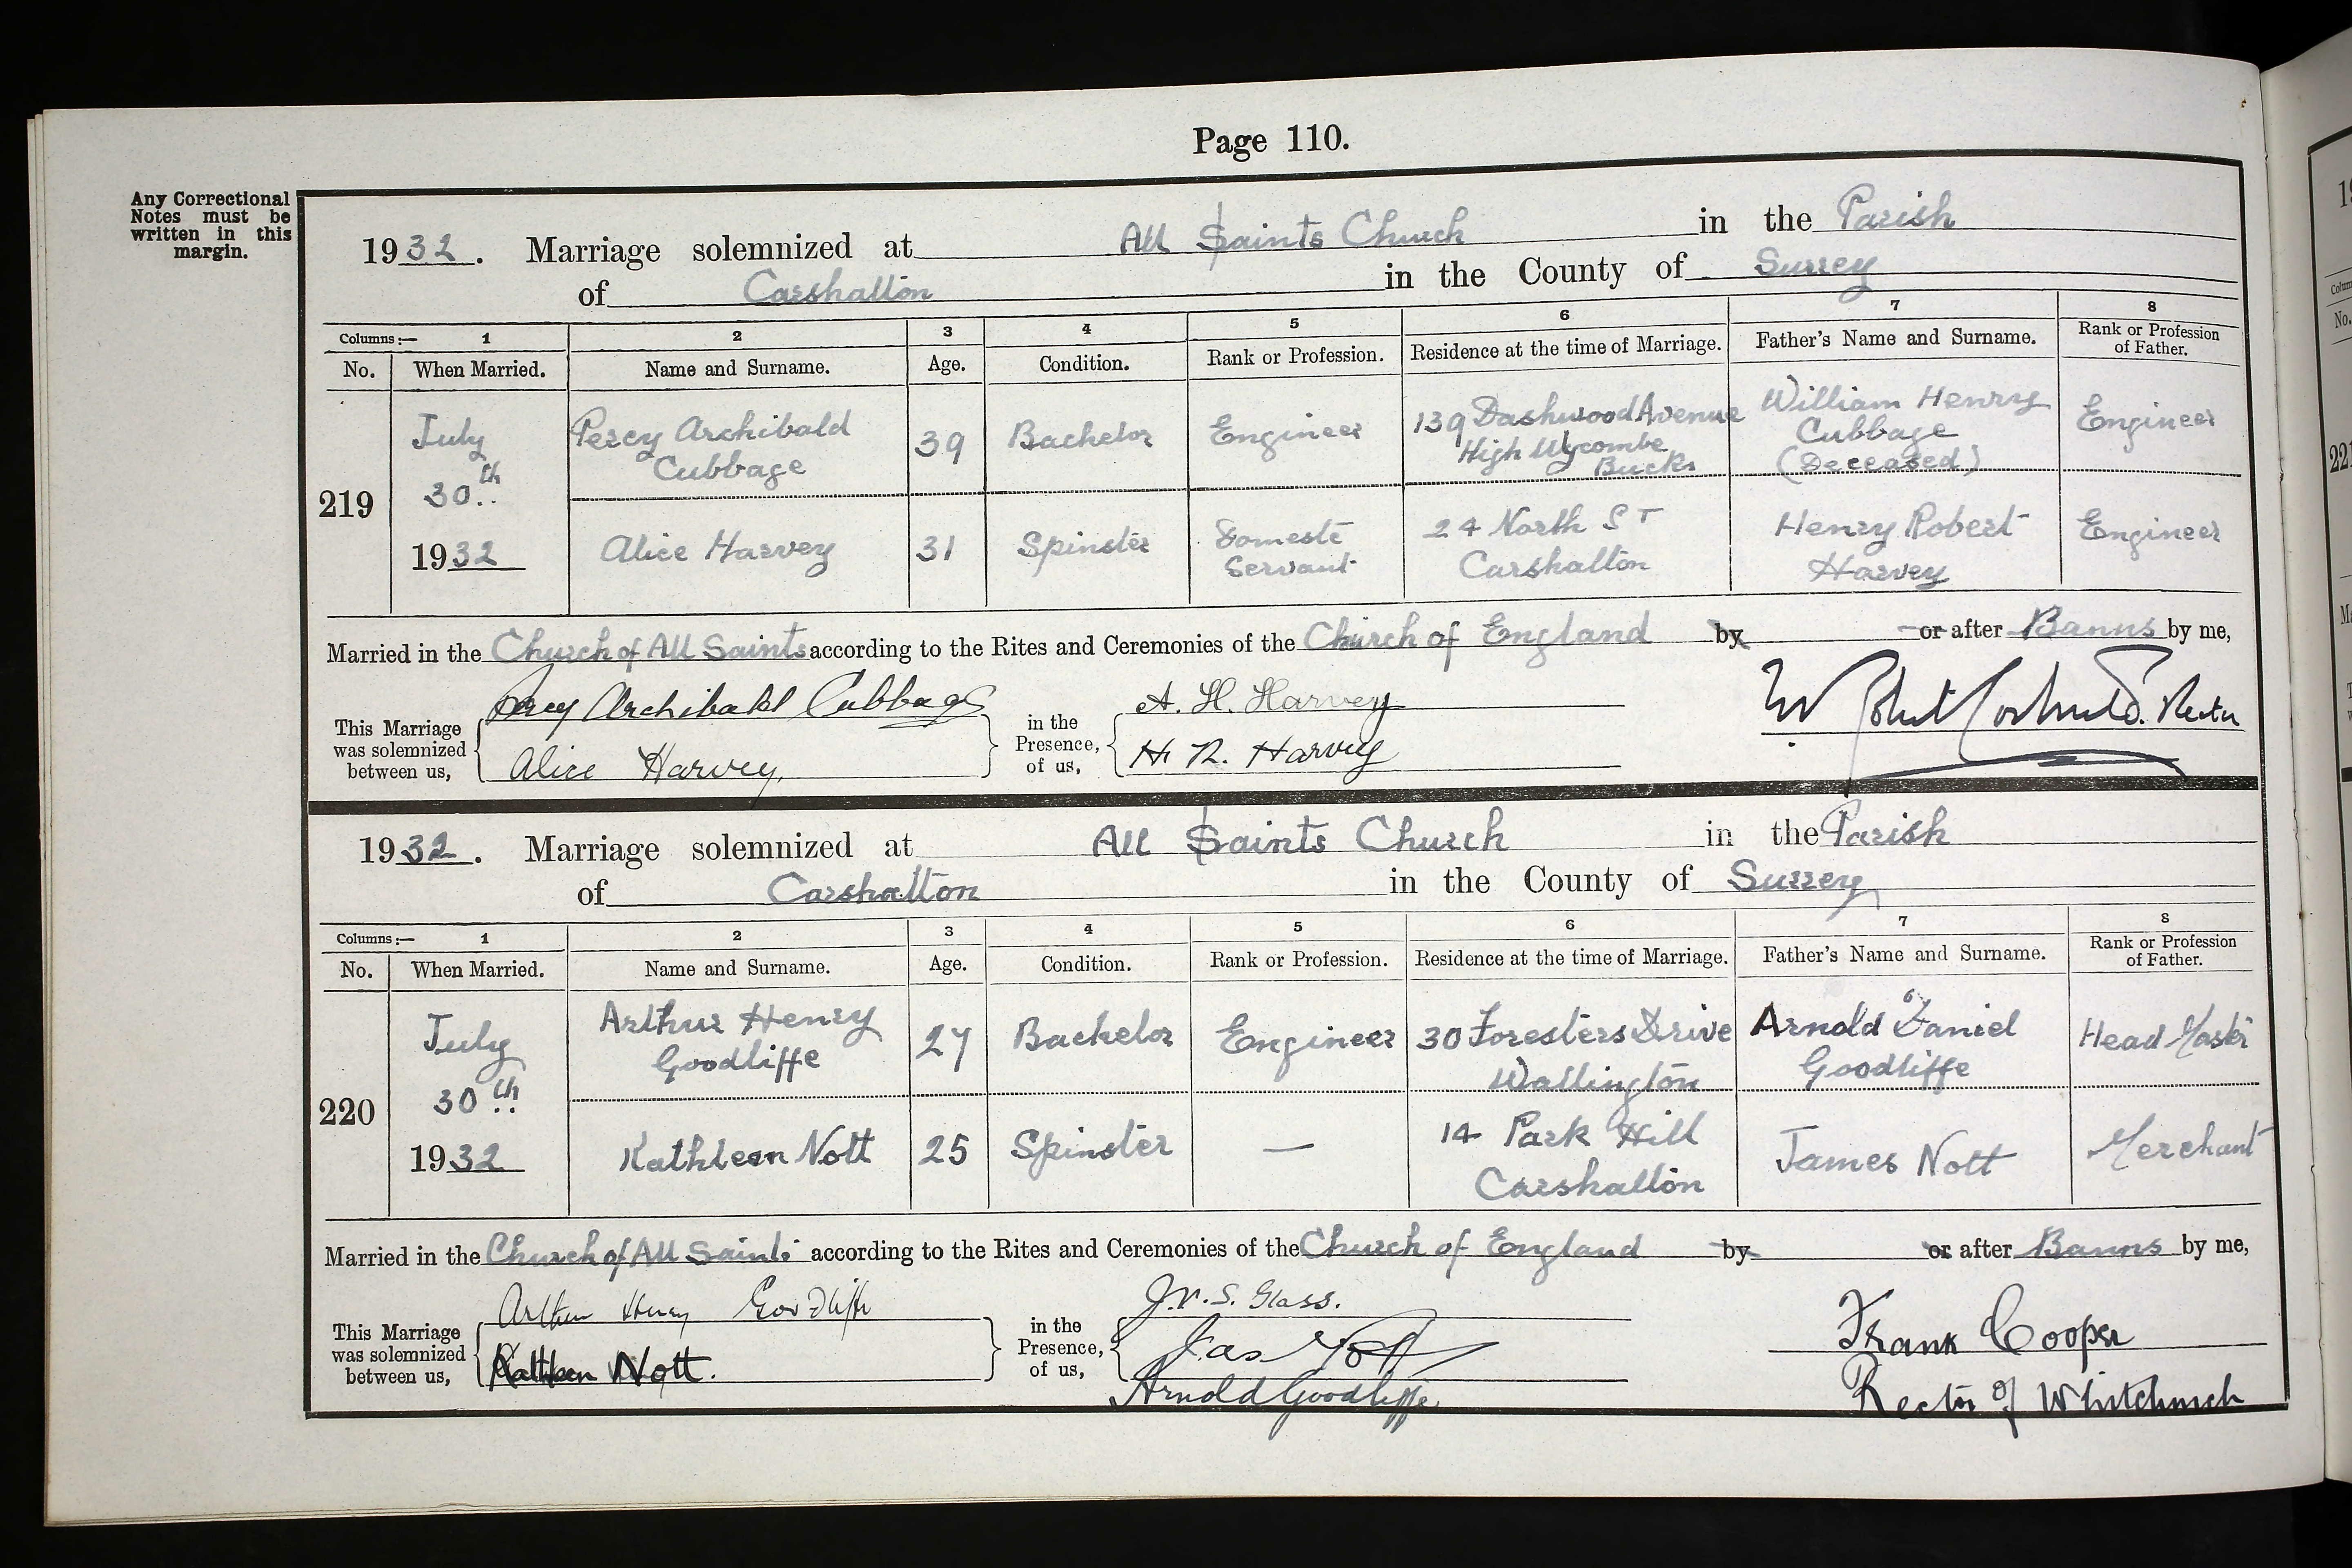 Page 110.
Any Correctional
Notes must be
written in this
margin.
1932. Marriage solemnized at All Saints Church in the Parish
of Carshalton in the County of Surrey
Columns:— 1 2 3 4 5 6 7 8
No. When Married. Name and Surname. Age. Condition. Rank or Profession. Residence at the time of Marriage. Father's Name and Surname. Rank or Profession
of Father.
219
July
30th
1932
Percy Archibald
Cubbage
39
Bachelor
Engineer
139 Dashwood Avenue
High Wycombe
Bucks
William Henry
Cubbage
(Deceased)
Engineer
Alice Harvey
31
Spinster
Domestc
Servant
24 North ST
Carshalton
Henry Robert
Harvey
Engineer
Married in the Church of All Saints according to the Rites and Ceremonies of the Church of England by or after Banns by me,
This Marriage
was solemnized
between us,
Percy Archibald Cubbage
Alice Harvey,
in the
Presence,
of us,
A. H. Harvey
H. R. Harvey
W Rector
1932. Marriage solemnized at All Saints Church in the Parish
of Carshalton in the County of Surrey
Columns:— 1 2 3 4 5 6 7 8
No. When Married. Name and Surname. Age. Condition. Rank or Profession. Residence at the time of Marriage. Father's Name and Surname. Rank or Profession
of Father.
220
July
30th
1932
Arthur Henry
Goodliffe
27
Bachelor
Engineer
30 Foresters Drive
Wallington
Arnold Daniel
Goodliffe
Head Master
Kathleen Nott
25
Spinster
—
14 Park Hill
Carshalton
James Nott
Merchant
Married in the Church of All Saints according to the Rites and Ceremonies of the Church of England by or after Banns by me,
This Marriage
was solemnized
between us,
Arthur Henry Goodliffe
Kathleen Nott.
in the
Presence,
of us,
J.V.S. Glass.
Jas Nott
Arnold Goodliffe
Frank Cooper
Rector of Whitchurch